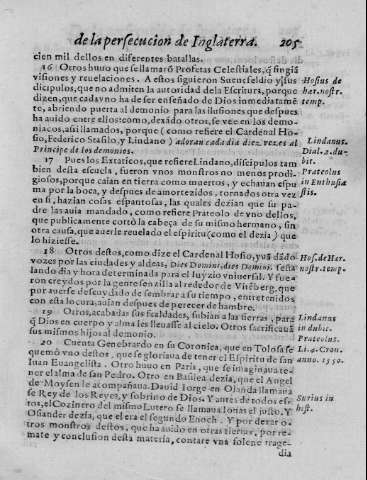 de la persecucion de Inglaterra. 205
cien mil dellos en diferentes batallas.
16 Otros huuo que se llamarō Profetas Celestiales, q̄ fingiā
visiones y reuelaciones. A estos siguieron Sueucfeldio y sus
dicipulos, que no admiten la autoridad de la Escritura, porque
dizen, que cada vno ha de ser enseñado de Dios inmediatamē
te, abriendo puerta al demonio para las ilusiones que despues
ha auido entre ellos: como, dexādo otros, se vee en los demo-
niacos, assi llamados, porque (como refiere el Cardenal Ho-
sio, Federico Stafilo, y Lindano) adoran cada dia diez vezes al
Principe de los demonios.
17 Pues los Extaticos, que refiere Lindano, discipulos tam
bien desta escuela, fueron vnos monstros no menos prodi-
giosos, porque caian en tierra como muertos, y echauan espu
ma por la boca, y despues de amortezidos, tornados otra vez
en si, hazian cosas espantosas, las quales dezian que su pa-
dre las auia mandado, como refiere Prateolo de vno dellos,
que publicamente cortò la cabeça de su mismo hermano, sin
otra causa, que auerle reuelado el espiritu (como el dezia) que
lo hiziesse.
18 Otros destos, como dize el Cardenal Hosio, yuā dādo
vozes por las ciudades y aldeas, Dies Domini, dies Domini,
landо dia y hora determinada para el Iuyzio vniuersal. Y fue-
ron creydos por la gente senzilla al rededor de Vitēberg, que
por auerse descuydado de sembrar a su tiempo, entretenidos
con esta locura, auian despues de perecer de hambre.
19 Otros, acabadas sus fealdades, subian a las sierras, para
q̄ Dios en cuerpo y alma les lleuasse al cielo. Otros sacrificauā
sus mismos hijos al demonio.
20 Cuenta Genebrardo en su Coronica, que en Tolosa se
quemò vno destos, que se gloriaua de tener el Espiritu de san
Iuan Euangelista. Otro huuo en Paris, que se imaginaua te-
ner el alma de san Pedro. Otro en Basilea dezia, que el Angel
de Moysen le acompañaua. Dauid Iorge en Olanda llamaua
se Rey de los Reyes, y sobrino de Dios. Y antes de todos es-
tos, el Cozinero del mismo Lutero se llamaua Ionas el justo. Y
Osiander dezia, que el era el segundo Enoch. Y por dexar o-
tros monstros destos, que ha auido en otras tierras, por re-
mate y conclusion desta materia, contare vna solene trage-
dia
Hosius de
har. nostr.
temp.
Lindanus.
Dial. 2. du-
bit.
Prateolus
in Enthusiæ
stis.
Hos. de Har.
nostr. temp.
Lindanus
in dubit.
Prateolus.
Li. 4. Cron.
anno. 1550.
Surius in
hist.